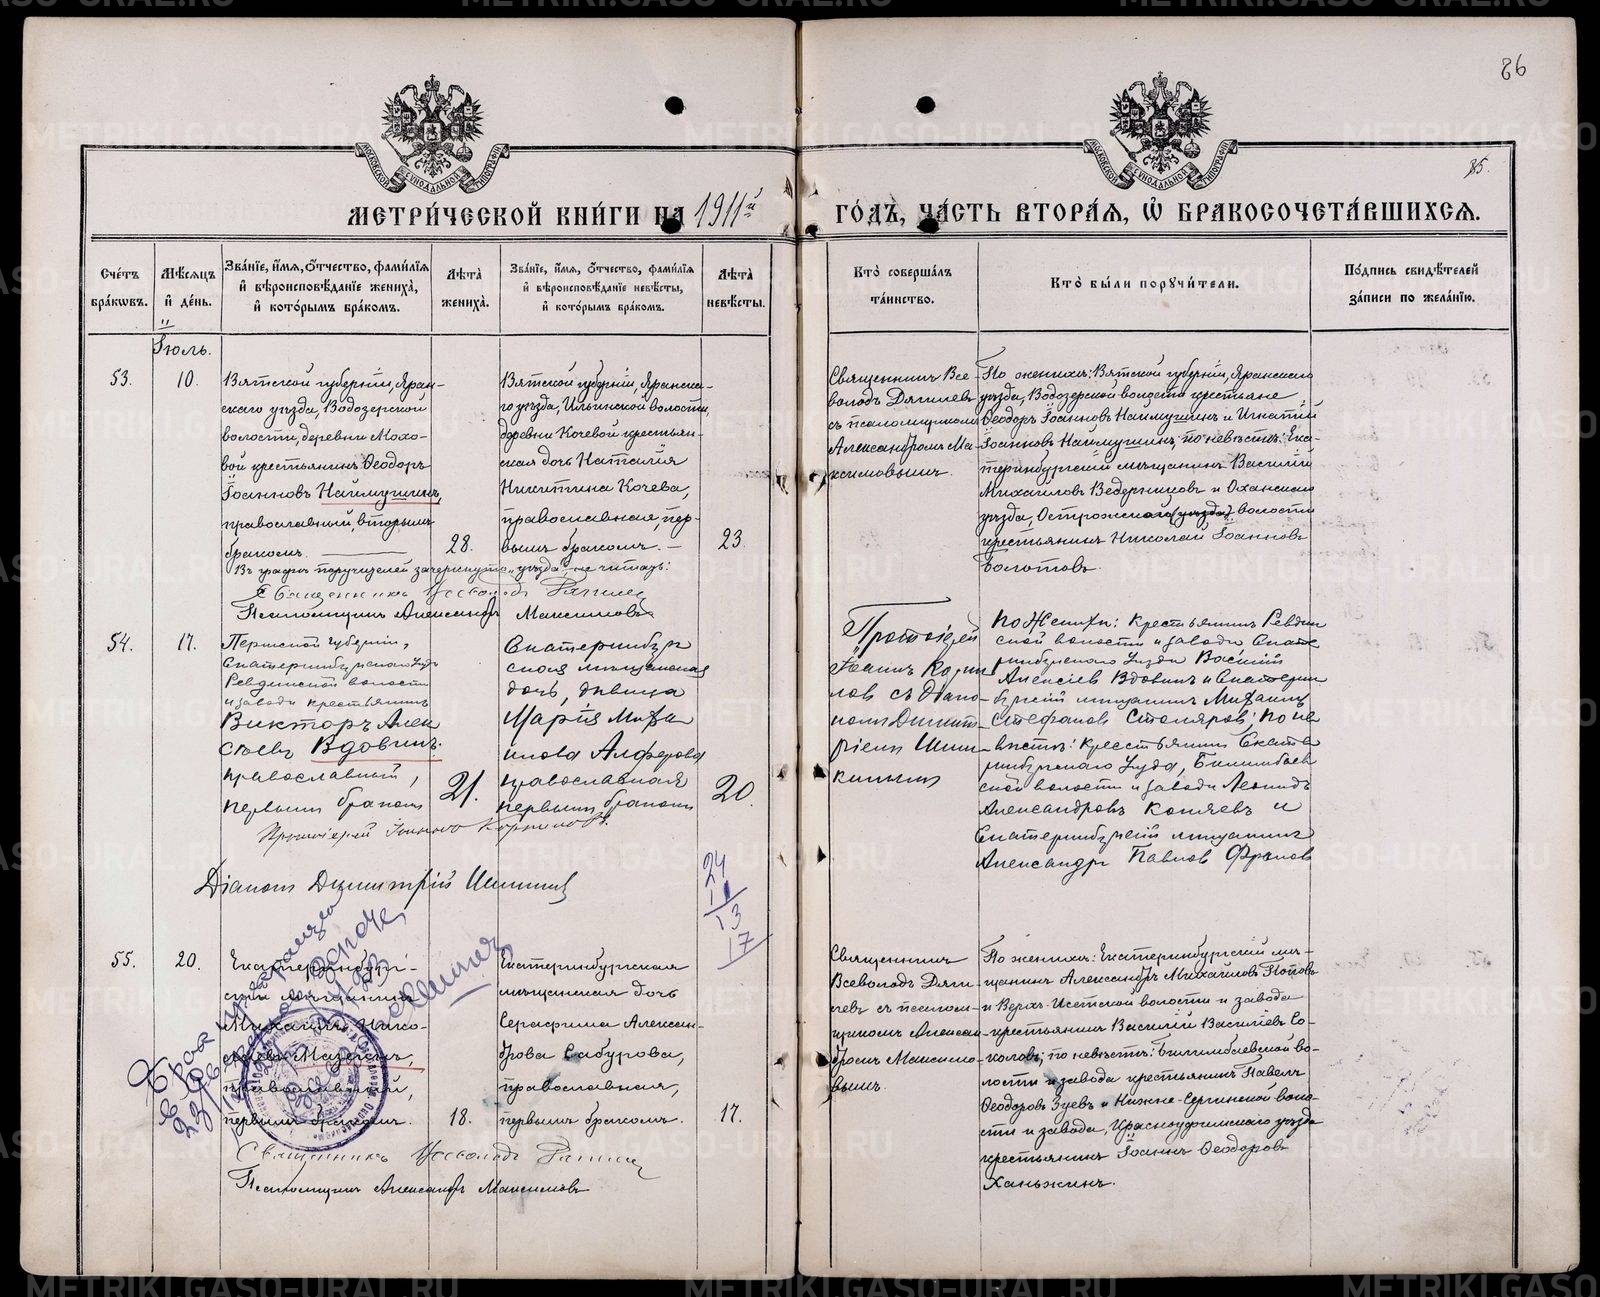 86
85.
МОСКОВСКОЙ СУНОДАЛЬНОЙ ТИПОГРАФІИ
МОСКОВСКОЙ СУНОДАЛЬНОЙ ТИПОГРАФІИ
МЕТРИ́ЧЕСКОЙ КНИ́ГИ НА 1911й ГО́ДЪ, ЧА́СТЬ ВТОРА́Я, Ѡ҆ БРАКОСОЧЕТА́ВШИХСЯ.
Сче́тъ бра́кѡвъ.
Мѣ́сяцъ и҆ де́нь.
Зва́нїе, и҆́мя, ѻ҆́тчество, фами́лїя и҆ вѣроисповѣ́данїе жениха̀, и҆ кото́рымъ бра́комъ.
Лѣ́та жениха̀.
Зва́нїе, и҆́мя, ѻ҆́тчество, фами́лїя и҆ вѣроисповѣ́данїе невѣ́сты, и҆ кото́рымъ бра́комъ.
Лѣ́та невѣ́сты.
Кто̀ соверша́лъ та́инство.
Кто̀ бы́ли порꙋчи́тели.
По́дпись свидѣ́телей за́писи по жела́нїю.
Іюль.
53.
10.
Вятской губерніи, Яран-
скаго уѣзда, Водозерской
волости, деревни Мохо-
вой крестьянинъ Ѳеодоръ
Іоанновъ Наймушинъ,
православный, вторымъ
бракомъ.
28.
Вятской губерніи, Яранска-
го уѣзда, Ильинской волости,
деревни Кочевой крестьян-
ская дочь Наталія
Никитина Кочева,
православная, пер-
вымъ бракомъ.
23.
Священникъ Все-
володъ Дягилевъ
съ псаломщикомъ
Александромъ Ма-
ксимовымъ.
По женихѣ: Вятской губерніи, Яранскаго
уѣзда, Водозерской волости крестьяне
Ѳеодоръ Іоанновъ Наймушинъ и Игнатій
Іоанновъ Наймушинъ, по невѣстѣ: Ека-
теринбургскій мѣщанинъ Василій
Михаиловъ Ведерниковъ и Оханскаго
уѣзда, Острожской (уѣзда) волости
крестьянинъ Николай Іоанновъ
Болотовъ.
Въ графѣ поручителей зачеркнуто „уѣзда" не читать:
Священникъ Всеволодъ Дягилевъ
Псаломщикъ Александръ Максимовъ
54.
17.
Пермской Губерніи,
Екатеринбургскаго Уѣзда
Ревдинской волости
и завода крестьянинъ
Викторъ Алек
сѣевъ Вдовинъ.
православный,
первымъ бракомъ
21.
Екатеринбург
ская мѣщанская
дочь, дѣвица
Марія Миха
илова Алферова
православная
первымъ бракомъ
20.
Протоіерей
Іоаннъ
ловъ съ діако-
номъ Димит-
ріемъ Шиш-
кинымъ
По Женихѣ: Крестьянинъ Ревдин
ской волости и завода Екате
ринбургскаго Уѣзда Василій
Алексіевъ Вдовинъ и Екатерин
бургскій мѣщанинъ Михаилъ
Стефановъ Столяровъ; по не
вѣстѣ: крестьянинъ Екате
ринбургскаго Уѣзда, Билимбаев
ской волости и завода Леонидъ
Александровъ Копяевъ и
Екатеринбургскій мѣщанинъ
Александръ Павловъ Фроловъ
Протоіерей Іоаннъ
Діаконъ Димитрій Шишкинъ
24
13
17
55.
20.
Екатеринбург-
скій мѣщанинъ
Михаилъ Нико-
лаевъ Мазеинъ,
православный,
первымъ бракомъ.
18.
Екатеринбургская
мѣщанская дочь
Серафима Алексан-
дрова Сабурова,
православная,
первымъ бракомъ.
17.
Священникъ
Всеволодъ Дяги-
левъ съ псалом-
щикомъ Алексан-
дромъ Максимо-
вымъ.
По женихѣ: Екатеринбургскій мѣ-
щанинъ Александръ Михайловъ Поповъ
и Верхъ-Исетской волости и завода
крестьянинъ Василій Василіевъ Со-
коловъ; по невѣстѣ: Билимбаевской во-
лости и завода крестьянинъ Павелъ
Ѳеодоровъ Зуевъ и Нижне-Сергинской воло-
сти и завода, Красноуфимскаго уѣзда
крестьянинъ Іоаннъ Ѳеодоровъ
Ханьжинъ.
Священникъ Всеволодъ Дягилевъ
Псаломщикъ Александръ Максимовъ
METRIKI.GASO-URAL.RU